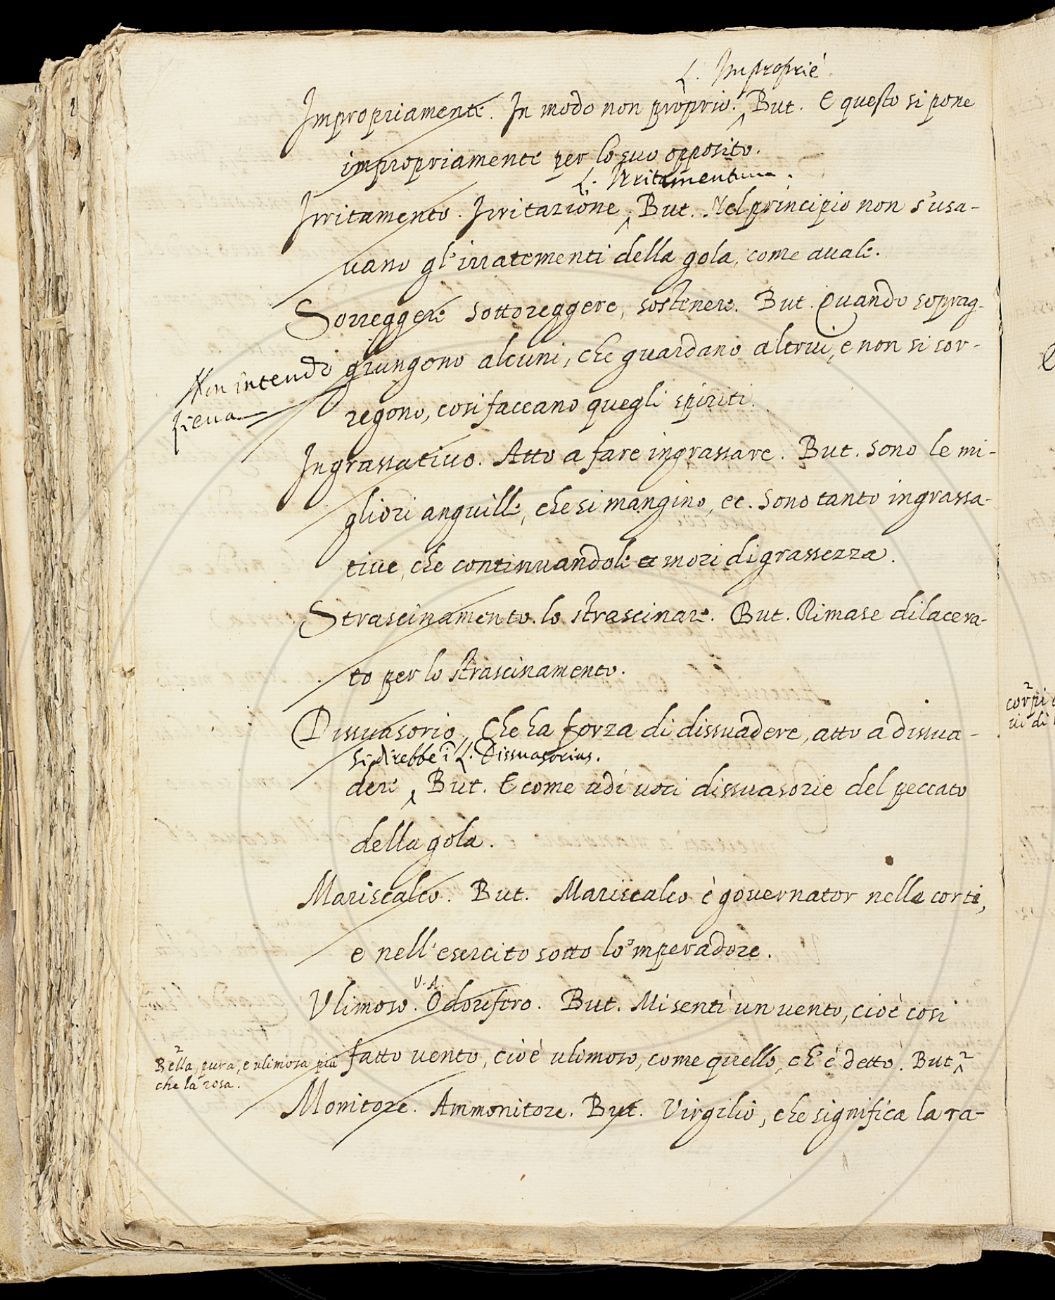 L. Impropriè
Impropriamente. In modo non proprio. But. E questo si pone
impropriamente per lo suo opposito.
L. Irritamentum.
Irritamento. Irritazione, But. Nel principio non s'usa-
vano gl'irratementi della gola, come avale.
Sorreggere sottoreggere, sostenere. But. Quando soprag-
Non intendo giungono alcuni, che guardano altrui, e non si sor-
regono, cosi faccano quegli spiriti.
Ingrassativo. Atto a fare ingrassare. But. sono le mi-
gliori anguille, che si mangino, ec. Sono tanto ingrassa-
tive, che continuandole morì di grassezza.
Strascinamento. lo strascinare. But. Rimase dilacera-
to per lo strascinamento.
Dissuasorio, Che ha forza di dissuadere, atto a dissua-
Si direbbe ī L. Dissuasorius.
dere, But. E come udì voci dissuasorie del peccato
della gola.
Mariscalco. But. Mariscalco è governator nella corte,
e nell'esercito sotto lo'mperadore.
V. A.
Ulimoso. Odorifero. But. Mi sentì un vento, cioè così
fatto vento, cioè ulimoso, come quello, ch'è detto. But.2
2
Bella, pura, e ulimosa più
che la rosa.
Monitore. Ammonitore. But. Virgilio, che significa la ra-